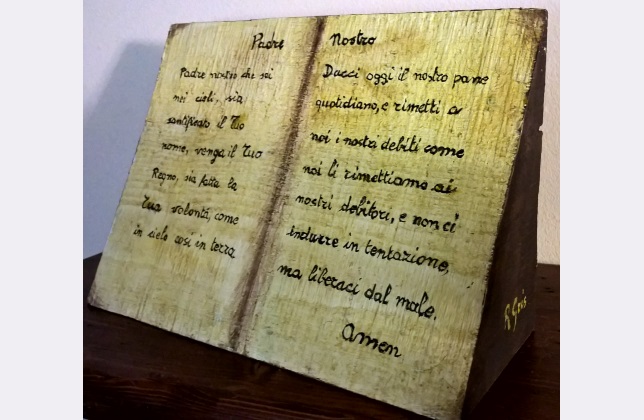 Padre Nostro
Padre nostro che sei
nei cieli, sia
santificato il Tuo
nome, venga il Tuo
Regno, sia fatta la
Tua volontà, come
in cielo così in terra
Dacci oggi il nostro pane
quotidiano, e rimetti a
noi i nostri debiti come
noi li rimettiamo ai
nostri debitori, e non ci
indurre in tentazione,
ma liberaci dal male.
Amen